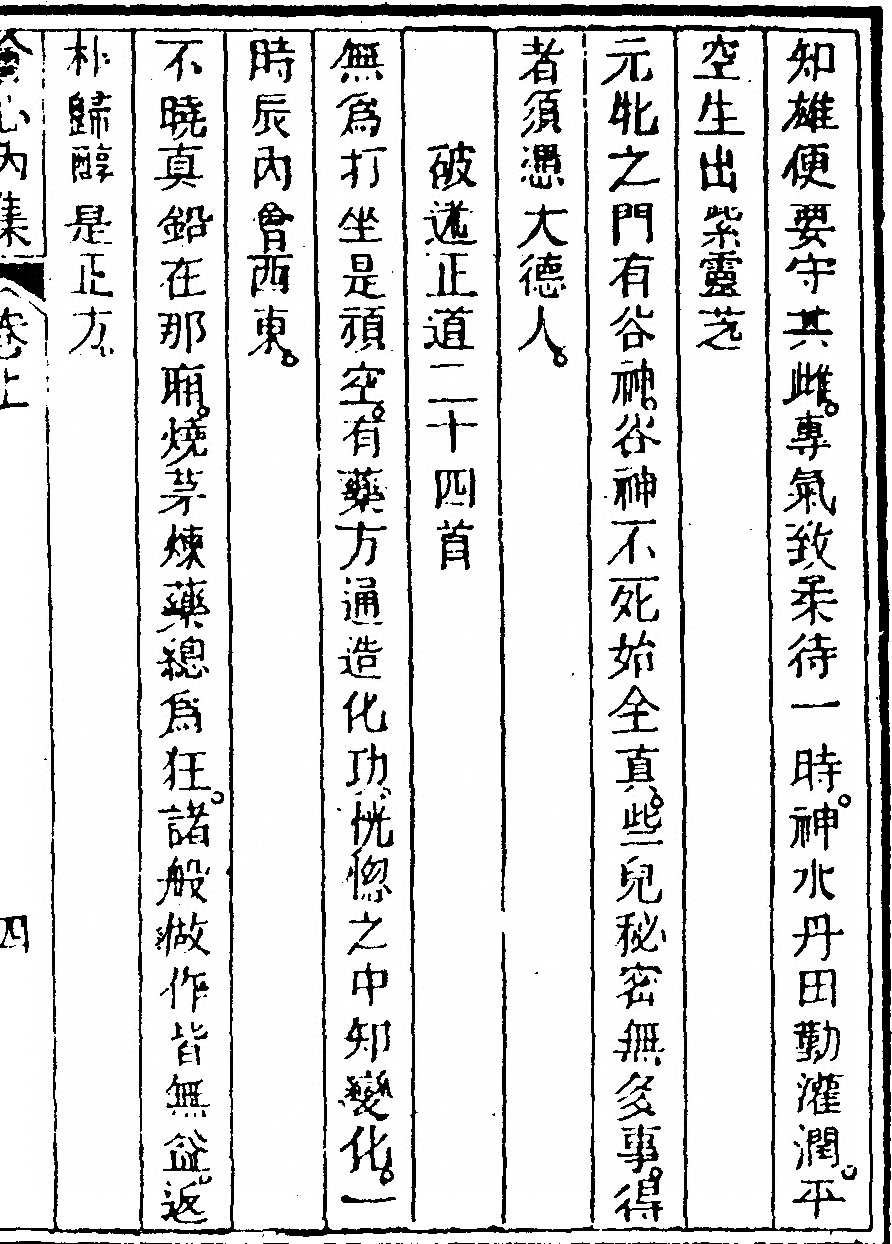 知雄便要守其雌。專氣致柔待一時。神水丹田勤灌潤。平
空生出紫靈芝
元牝之門有谷神。谷神不死始全真。些兒秘密無多事。得
者須憑大德人。
破迷正道二十四首
無為打坐是頑空。有藥方通造化功。恍惚之中知變化。一
時辰內會西東。
不曉真鉛在那廂。燒茅煉藥總為狂。諸般做作皆無益。返
朴歸醇是正方
會心內集 卷上 四